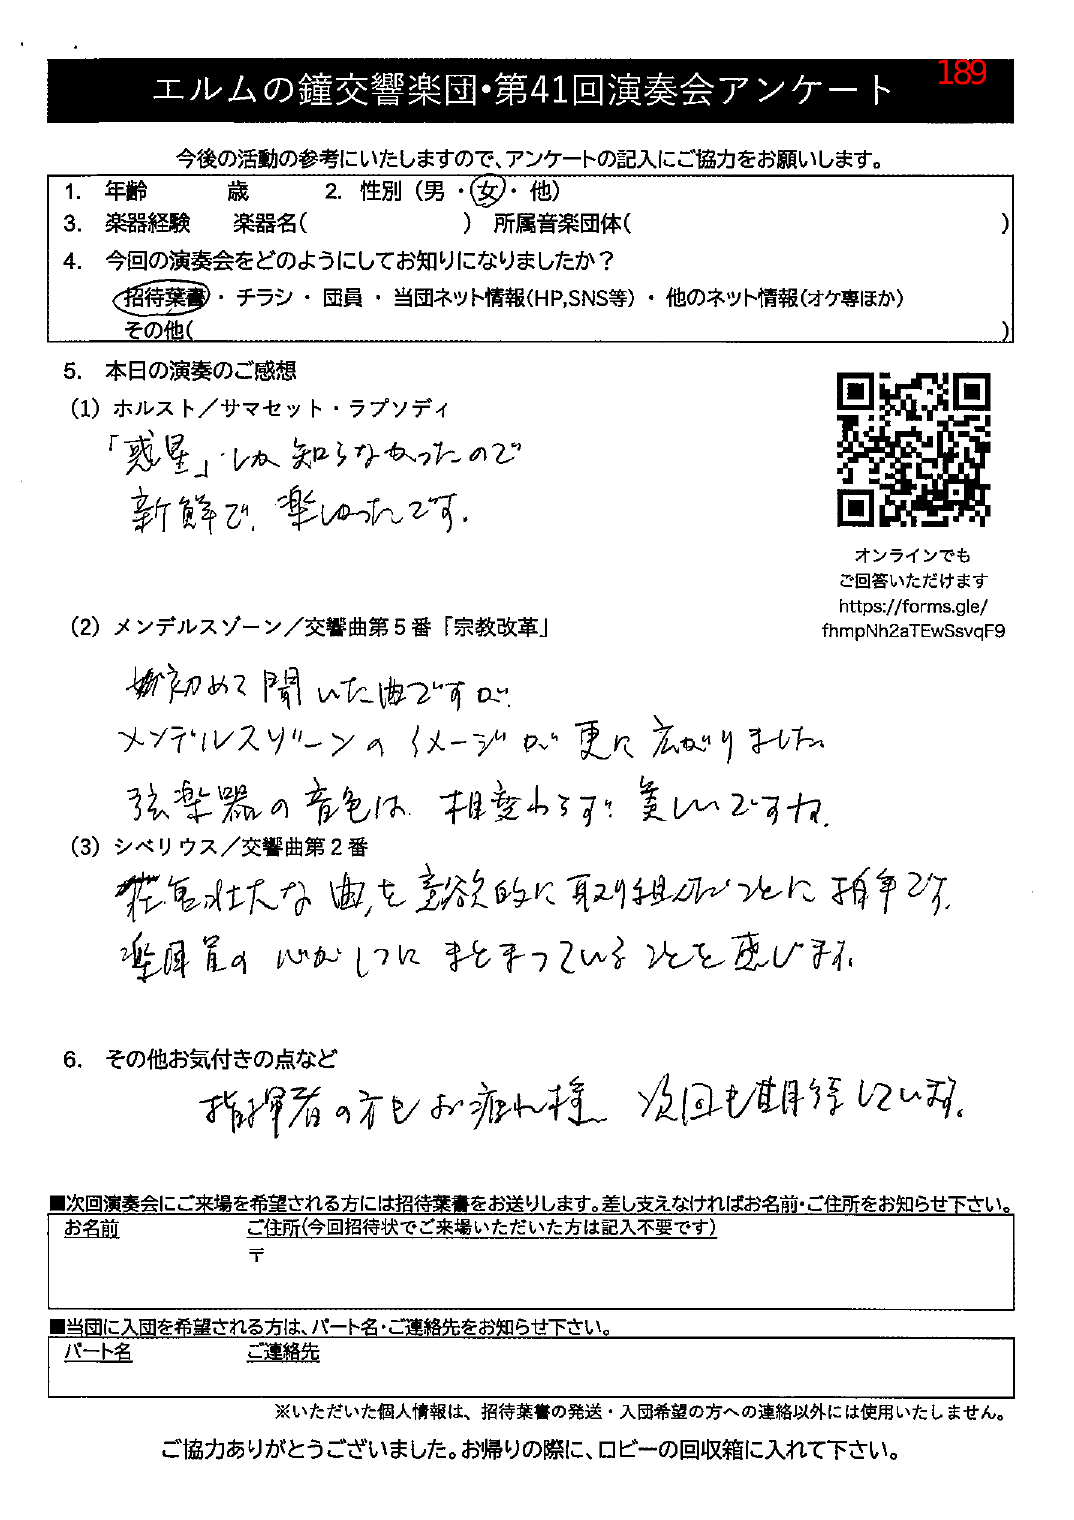 エルムの鐘交響楽団・第41回演奏会アンケート
189
今後の活動の参考にいたしますので、アンケートの記入にご協力をお願いします。
1. 年齢 歳 2. 性別（男・女・他）
3. 楽器経験 楽器名( ) 所属音楽団体( )
4. 今回の演奏会をどのようにしてお知りになりましたか？
招待葉書・チラシ・団員・当団ネット情報(HP,SNS等)・他のネット情報(オケ専ほか)
その他( )
5. 本日の演奏のご感想
(1) ホルスト／サマセット・ラプソディ
「惑星」しか知らなかったので
新鮮で、楽しかったです。
オンラインでも
ご回答いただけます
https://forms.gle/
fhmpNh2aTEwSsvqF9
(2) メンデルスゾーン／交響曲第５番「宗教改革」
初めて聞いた曲ですが、
メンデルスゾーンのイメージが更に広がりました
弦楽器の音色は相変わらず美しいですね。
(3) シベリウス／交響曲第２番
壮大な曲を意欲的に取り組んだことに拍手です。
楽団員の心が1つにまとまっていることを感じます。
6. その他お気付きの点など
指揮者の方もお疲れ様 次回も期待しています。
■次回演奏会にご来場を希望される方には招待葉書をお送りします。差し支えなければお名前・ご住所をお知らせ下さい。
お名前 ご住所(今回招待状でご来場いただいた方は記入不要です)
〒
■当団に入団を希望される方は、パート名・ご連絡先をお知らせ下さい。
パート名 ご連絡先
※いただいた個人情報は、招待葉書の発送・入団希望の方への連絡以外には使用いたしません。
ご協力ありがとうございました。お帰りの際に、ロビーの回収箱に入れて下さい。